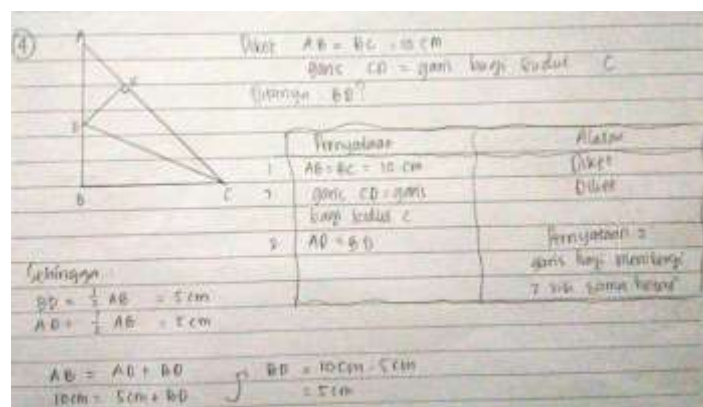 4
A
Diket AB = BC = 10 cm
garis CD = garis bagi sudut C
Ditanya BD?
B
C
Pernyataan Alasan
1 AB = BC = 10 cm Diket
2 garis CD = garis Diket
bagi sudut C
3 AD = BD Pernyataan 2
garis bagi membagi
2 sisi sama besar
Sehingga
BD = 1/2 AB = 5 cm
AD = 1/2 AB = 5 cm
AB = AD + BD BD = 10 cm - 5 cm
10 cm = 5 cm + BD = 5 cm